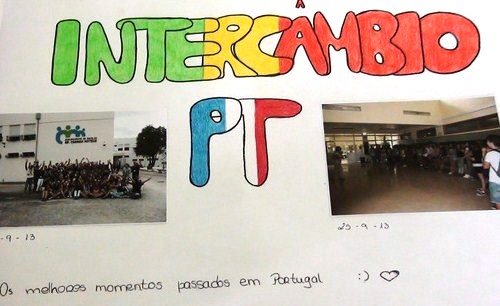 INTERCÂMBIO
PT
-9-13
25-9-13
Os melhores momentos passados em Portugal :) ♡